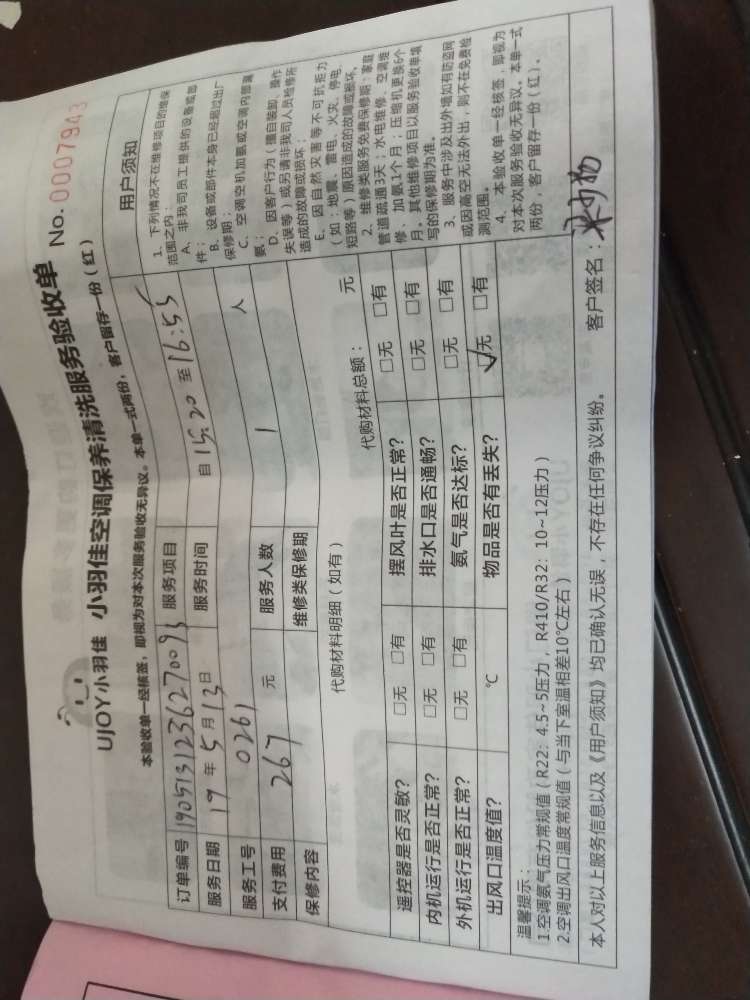 UJOY小羽佳 小羽佳空调保养清洗服务验收单 No. 0007943
本验收单一经核签，即视为对本次服务验收无异议。本单一式两份，客户留存一份（红）
订单编号 190513123627009 服务项目
服务日期 19 年 5 月 13 日 服务时间 自 15:20 至 16:55
服务工号 0261
支付费用 267 元 服务人数 1 人
保修内容 维修类保修期
代购材料明细（如有） 代购材料总额： 元
遥控器是否灵敏？ □无 □有 摆风叶是否正常？ □无 □有
内机运行是否正常？ □无 □有 排水口是否通畅？ □无 □有
外机运行是否正常？ □无 □有 氨气是否达标？ □无 □有
出风口温度值？ ℃ 物品是否有丢失？ ☑无 □有
用户须知
1、下列情况不在维修项目的维保
范围之内：
A、非我司员工提供的设备或部
件；
B、设备或部件本身已经超过出厂
保修期；
C、空调空机加氨或空调内部漏
氨；
D、因客户行为（擅自装卸、操作
失误等）或另请非我司人员检修所
造成的故障或损坏；
E、因自然灾害等不可抗拒力
（如：地震、雷电、火灾、停电、
短路等）原因造成的故障或损坏。
2、维修类服务免费保修期：家庭
管道疏通3天；水电维修、空调维
修、加氨1个月；压缩机更换6个
月。其他维修项目以服务验收单填
写的保修期为准。
3、服务中涉及出外墙如有防盗网
或因高空无法外出，则不在免费检
测范围。
4、本验收单一经核签，即视为
对本次服务验收无异议。本单一式
两份，客户留存一份（红）。
温馨提示：
1.空调氨气压力常规值（R22：4.5~5压力，R410/R32：10~12压力）
2.空调出风口温度常规值（与当下室温相差10℃左右）
本人对以上服务信息以及《用户须知》均已确认无误，不存在任何争议纠纷。 客户签名：